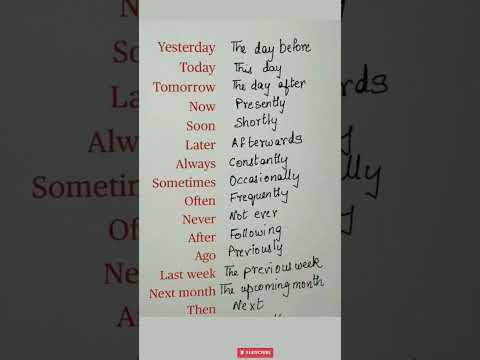 Yesterday The day before
Today This day
Tomorrow The day after
Now Presently
Soon Shortly
Later Afterwards
Always Constantly
Sometimes Occasionally
Often Frequently
Never Not ever
After Following
Ago Previously
Last week The previous week
Next month The upcoming month
Then Next
SUBSCRIBE